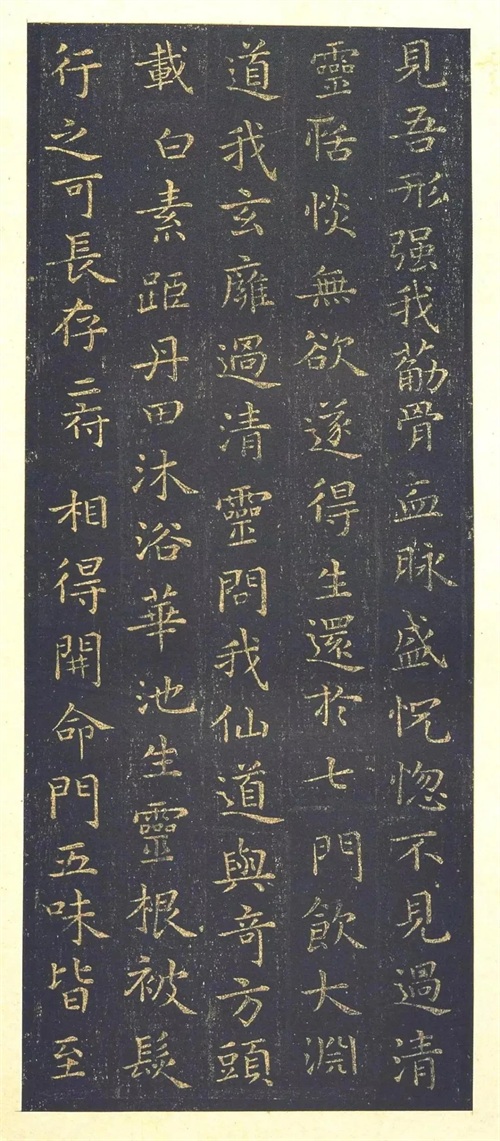 見吾形强我荕骨血脉盛怳惚不見過清
靈恬惔無欲遂得生還於七門飲大淵
道我玄廱過清靈問我仙道與奇方頭
載白素距丹田沐浴華池生靈根被髮
行之可長存二府相得開命門五味皆至